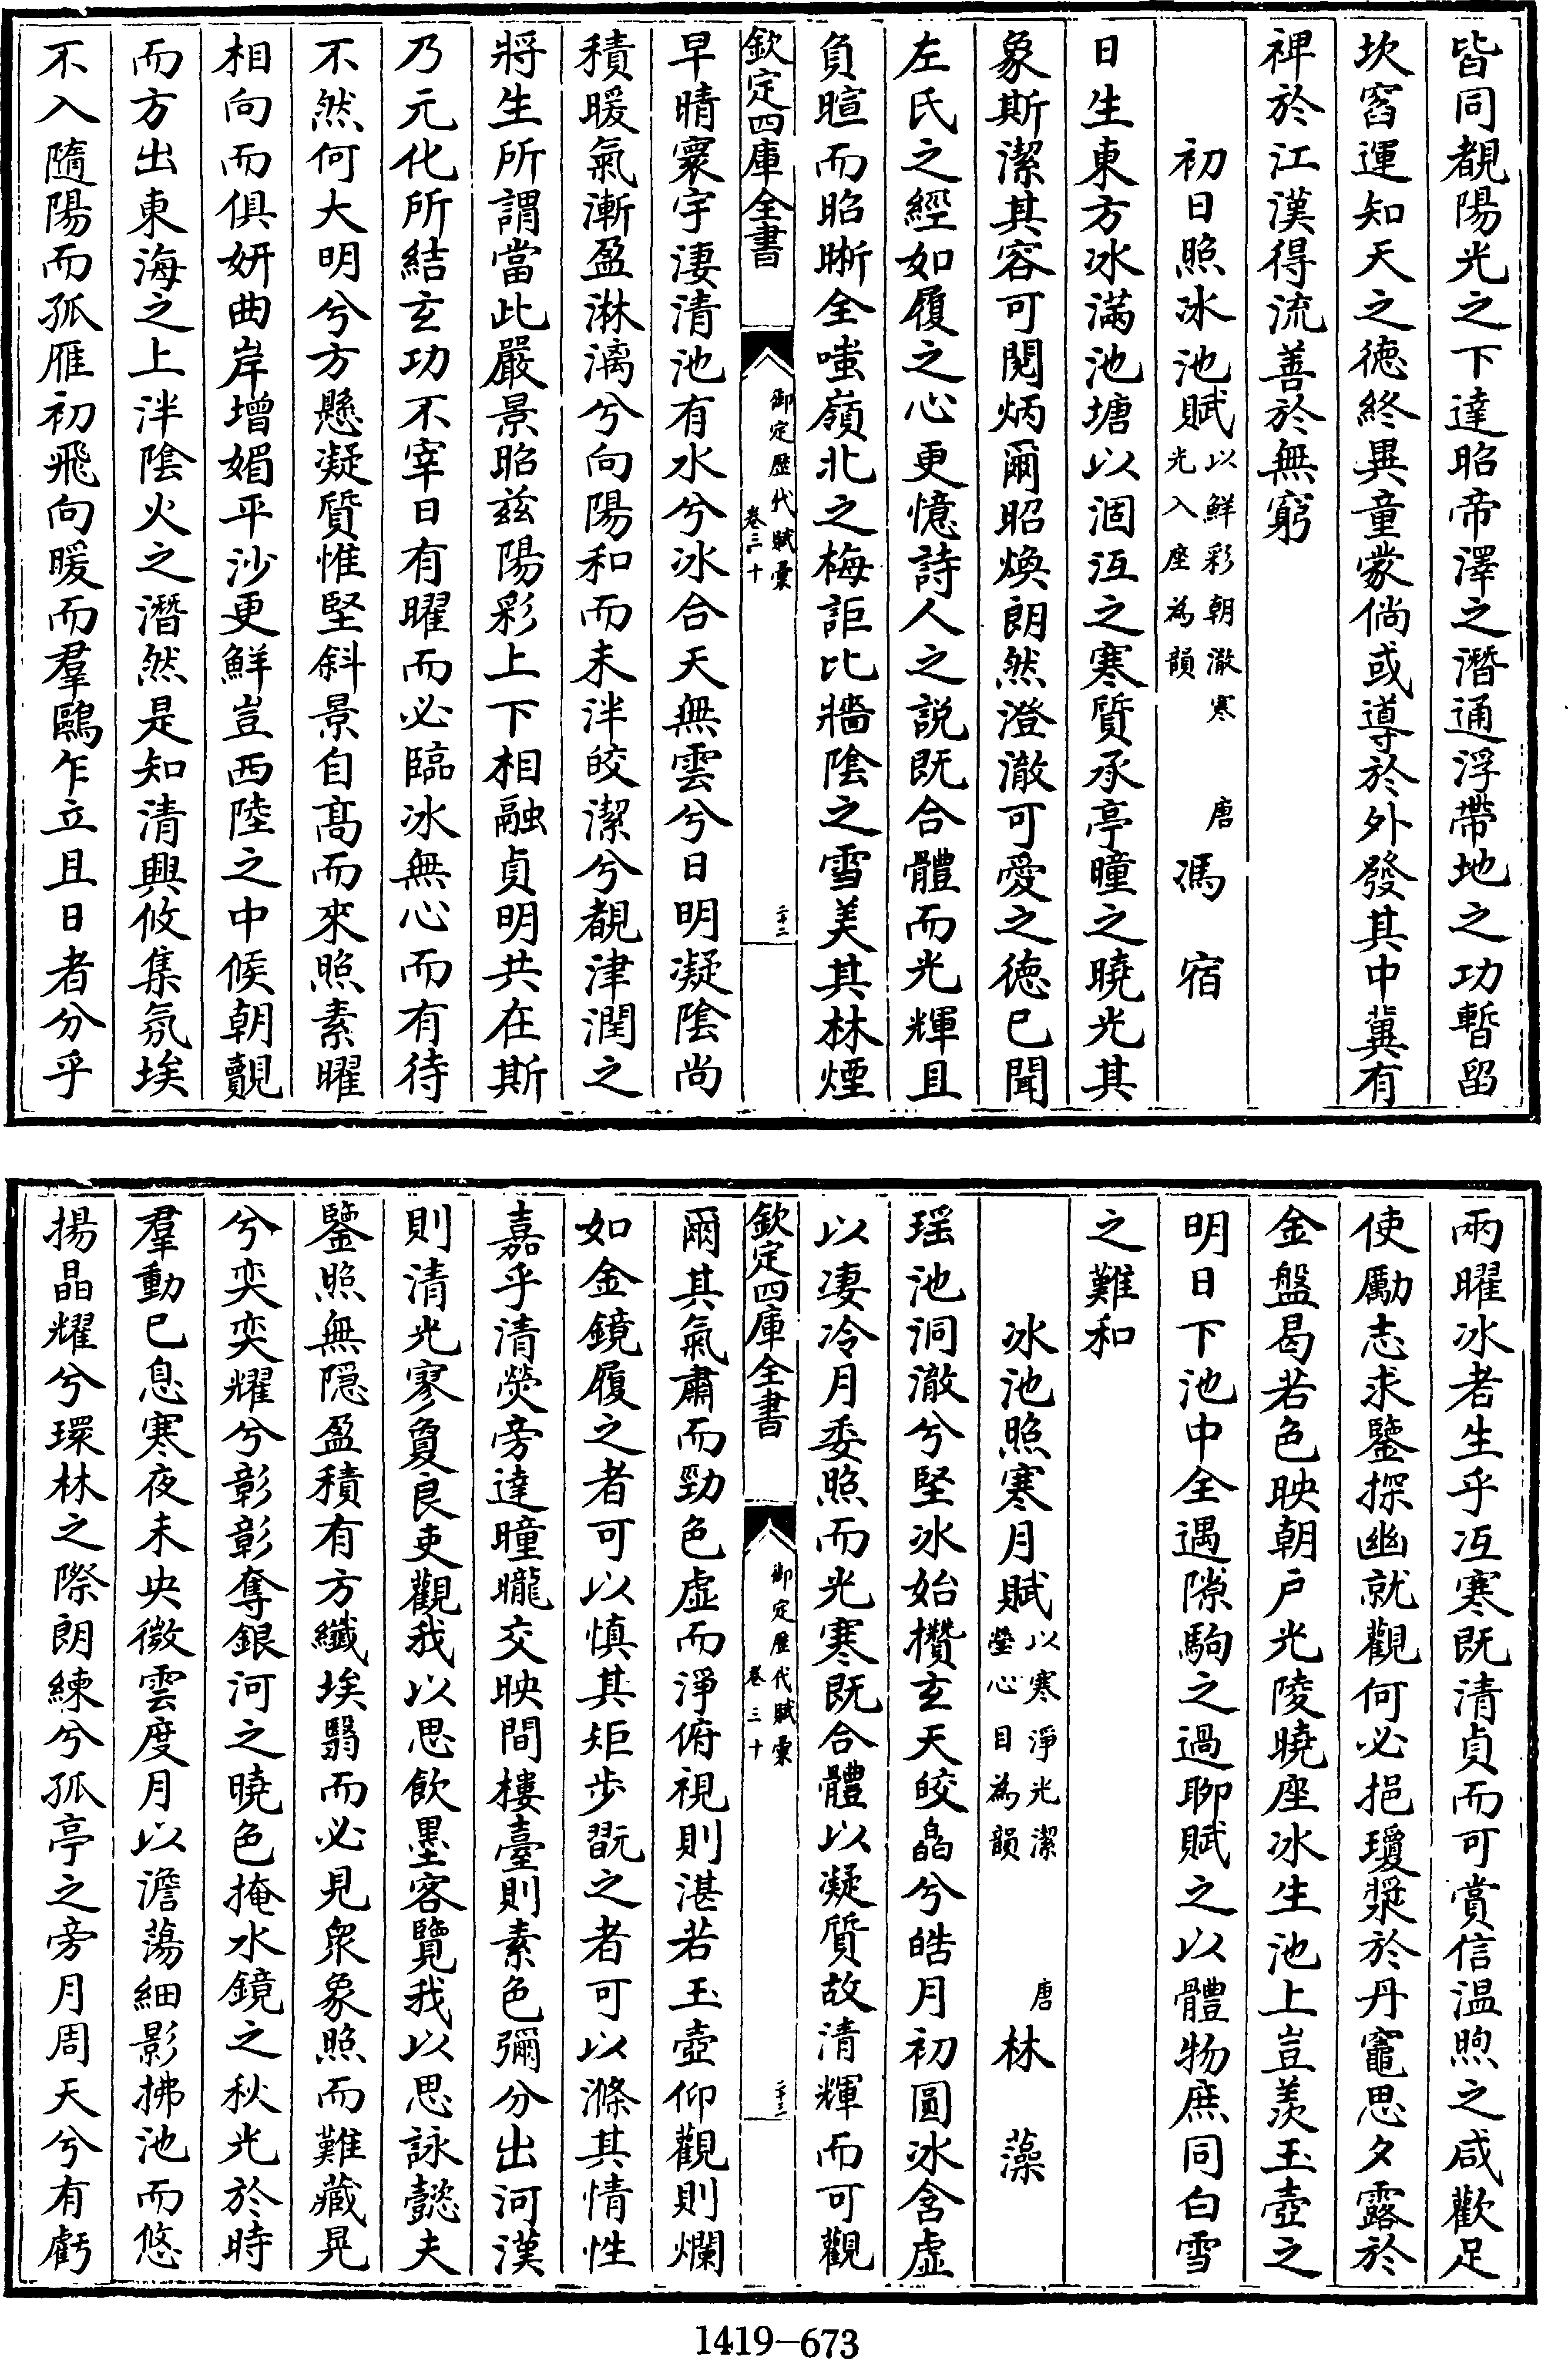 皆同覩陽光之下達昭帝澤之潛通浮帶地之功暫留
坎窞運知天之德終異童蒙倘或導於外發其中冀有
裨於江漢得流善於無窮
初日照冰池賦以鮮彩朝澈寒光入座為韻 唐 馮宿
日生東方冰滿池塘以涸沍之寒質承亭曈之曉光其
象斯潔其容可閱炳爾昭煥朗然澄澈可愛之德已聞
左氏之經如履之心更憶詩人之説既合體而光輝且
負暄而昭晰全嗤嶺北之梅詎比牆陰之雪美其林煙
欽定四庫全書 御定歷代賦彙 卷三十 二十二
早晴寰宇淒清池有水兮冰合天無雲兮日明凝陰尚
積暖氣漸盈淋漓兮向陽和而未泮皎潔兮覩津潤之
將生所謂當此嚴景昭兹陽彩上下相融貞明共在斯
乃元化所結玄功不宰日有曜而必臨冰無心而有待
不然何大明兮方懸凝質惟堅斜景自髙而來照素曜
相向而俱妍曲岸增媚平沙更鮮豈西陸之中候朝覿
而方出東海之上泮陰火之潛然是知清興攸集氛埃
不入隨陽而孤雁初飛向暖而羣鷗乍立且日者分乎
兩曜冰者生乎沍寒既清貞而可賞信温煦之咸歡足
使勵志求鑒探幽就觀何必挹瓊漿於丹竈思夕露於
金盤曷若色映朝户光陵曉座冰生池上豈羨玉壺之
明日下池中全遇隙駒之過聊賦之以體物庶同白雪
之難和
冰池照寒月賦以寒淨光潔瑩心目為韻 唐 林藻
瑶池洞澈兮堅冰始攢玄天皎皛兮皓月初圓冰含虛
以凄冷月委照而光寒既合體以凝質故清輝而可觀
欽定四庫全書 御定歷代賦彙 卷三十 二十三
爾其氣肅而勁色虛而淨俯視則湛若玉壺仰觀則爛
如金鏡履之者可以慎其矩步翫之者可以滌其情性
嘉乎清熒旁達曈曨交映間樓臺則素色彌分出河漢
則清光寥敻良吏觀我以思飲墨客覽我以思詠懿夫
鑒照無隱盈積有方纎埃翳而必見衆象照而難藏晃
兮奕奕耀兮彰彰奪銀河之曉色掩水鏡之秋光於時
羣動已息寒夜未央微雲度月以澹蕩細影拂池而悠
揚晶耀兮環林之際朗練兮孤亭之旁月周天兮有虧
1419-673